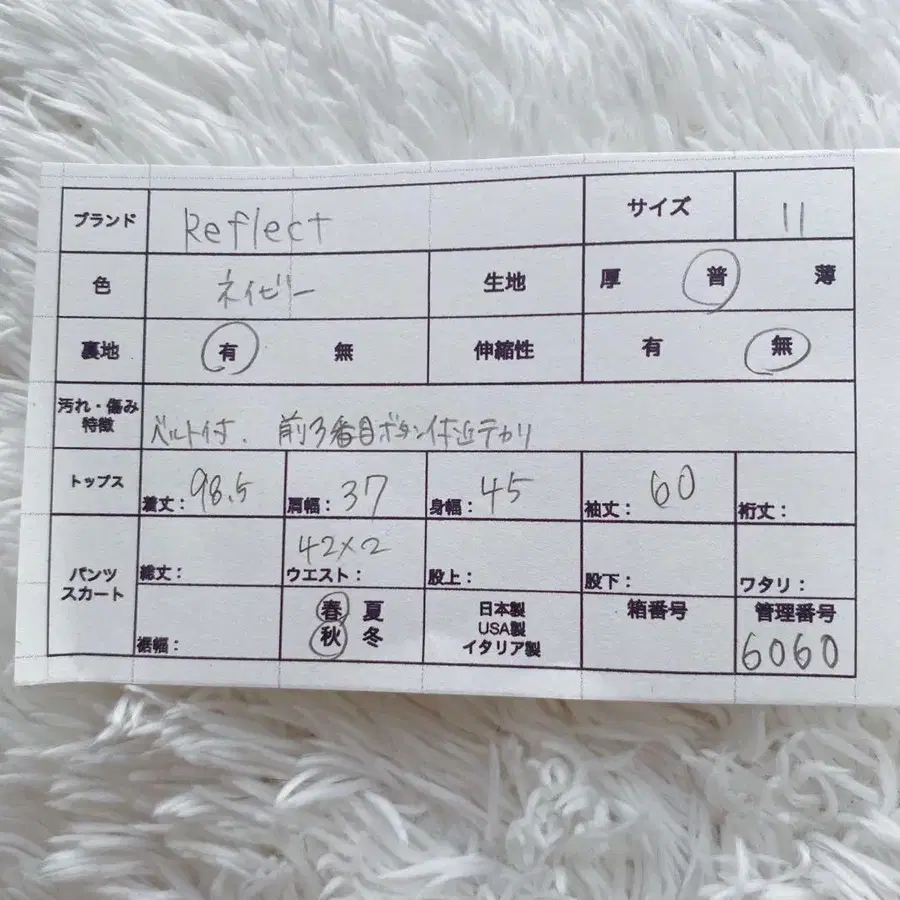 ブランド Reflect サイズ 11
色 ネイビー 生地 厚 普 薄
裏地 有 無 伸縮性 有 無
汚れ・傷み
特徴
ベルト付. 前3番目ボタン付近テカリ
トップス 着丈: 98.5 肩幅: 37 身幅: 45 袖丈: 60 裄丈:
パンツ
スカート
総丈: ウエスト: 42×2 股上: 股下: ワタリ:
裾幅:
春 夏
秋 冬
日本製
USA製
イタリア製
箱番号
管理番号
6060